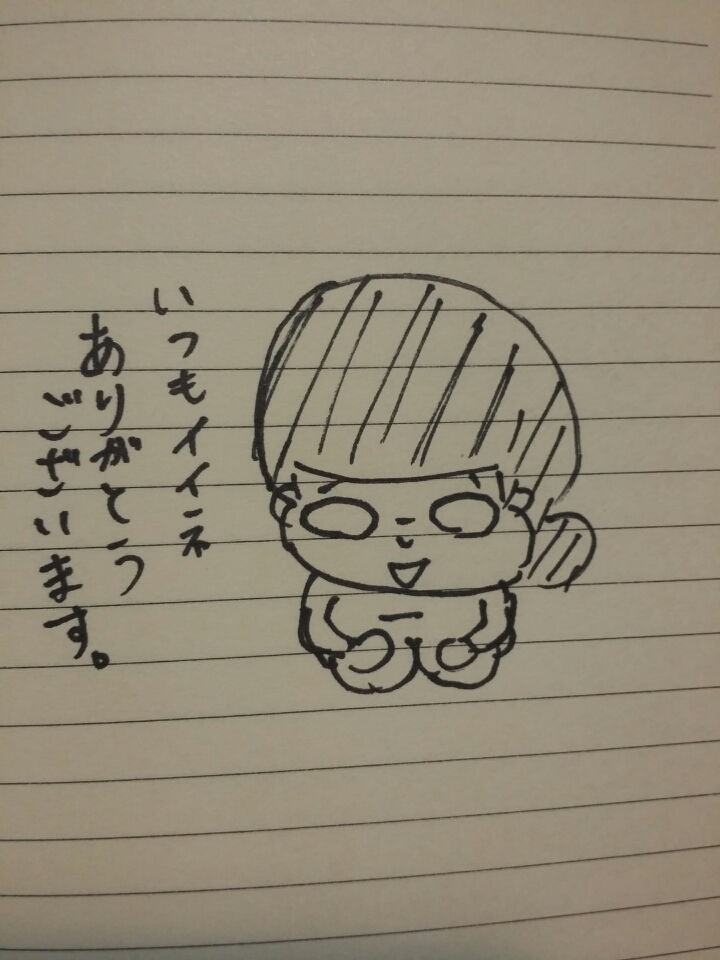 いつもイイネ
ありがとう
ございます。